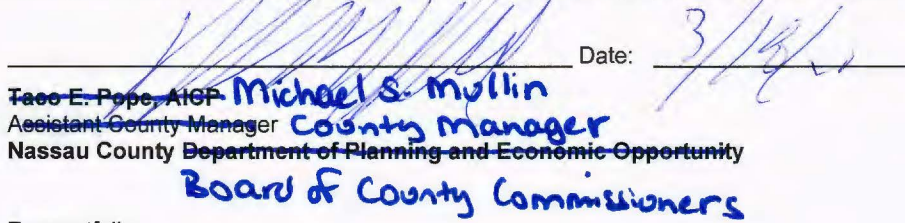 Date: 3/18/
Taco E. Pope, AICP Michael S. Mullin
Assistant County Manager County Manager
Nassau County Department of Planning and Economic Opportunity
Board of County Commissioners